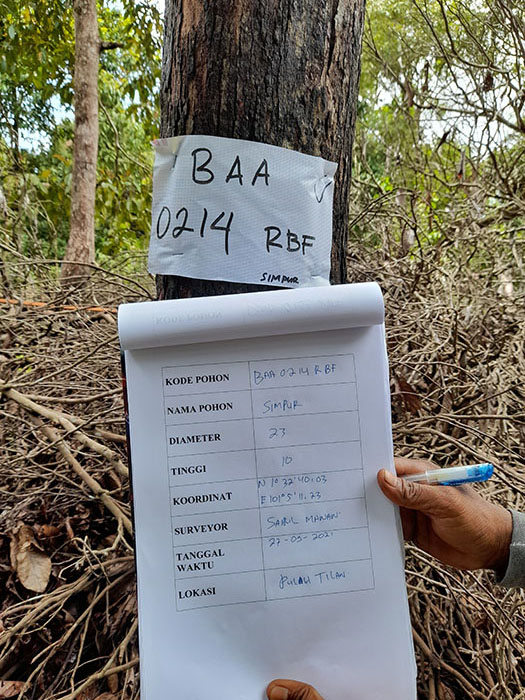 BAA
0214 RBF
SIMPUR
KODE POHON BAA 0214 RBF
NAMA POHON SIMPUR
DIAMETER 23
TINGGI 10
KOORDINAT N 1° 32'40.03
E 101° 5' 11.23
SURVEYOR SAIRIL MANAN
TANGGAL WAKTU 27-05-2021
LOKASI PULAU TILAN